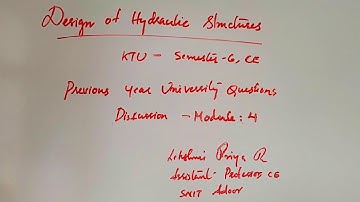 Design of Hydraulic Structures
KTU - Semester-6, CE
Previous Year University Questions
Discussion - Module: 4
Lekshmi Priya R
Assistant Professor CE
SNIT Adoor